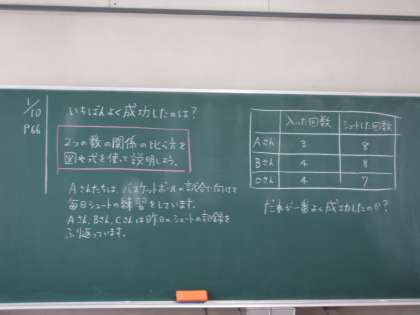 1/10
P66
いちばんよく成功したのは？
2つの数の関係の比べ方を
図や式を使って説明しよう。
Aさんたちは、バスケットボールの試合に向けて
毎日シュートの練習をしています。
Aさん、Bさん、Cさんは昨日のシュートの記録を
ふり返っています。
入った回数 シュートした回数
Aさん 3 8
Bさん 4 8
Cさん 4 7
だれが一番よく成功したのか？